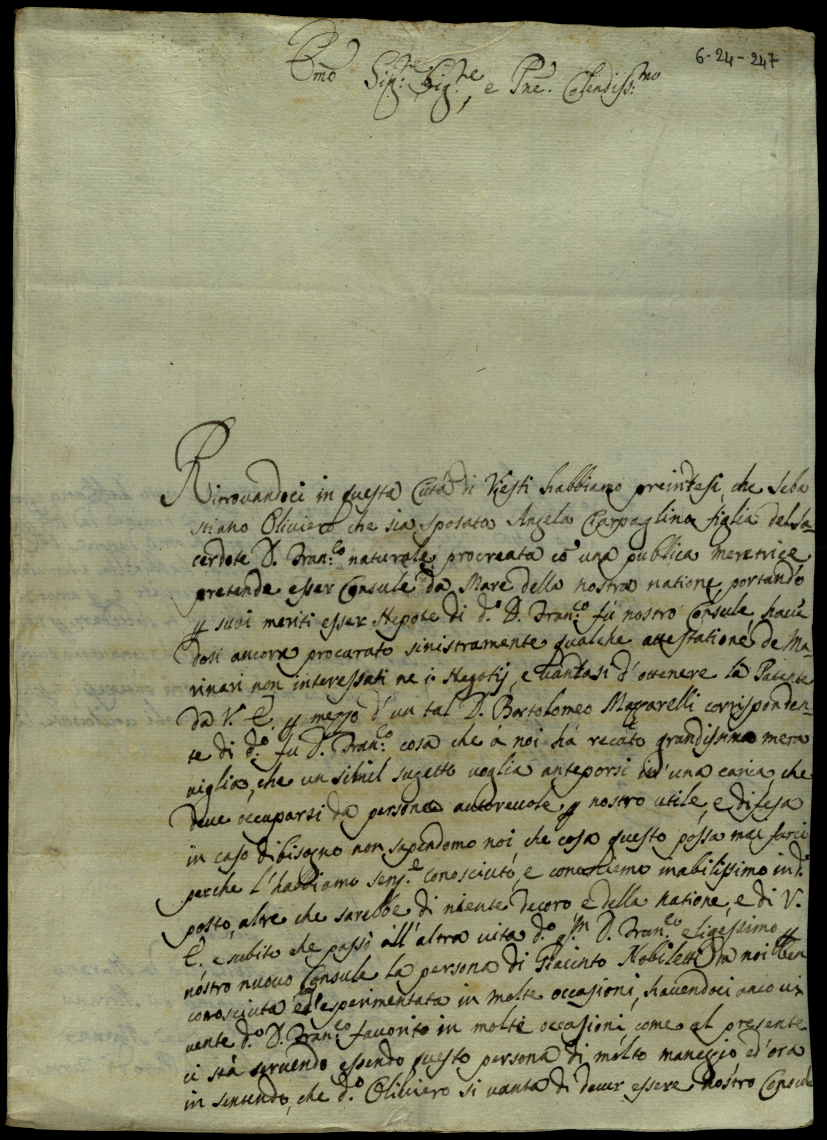 6-24-247
Ill.mo Sig.re Sig.re, e Pne. Colendiss.mo
Ritrovandoci in questa Città di Viesti habbiamo preinteso, che Seba
stiano Oliviero che sia sposato Angela Carpaglina figlia del Sa=
cerdote D. Fran.co naturale, procreata cò una publica meretrice
pretende esser Consule da Mare della nostra natione, portando
p suoi meriti esser Nepote di d.o D. Fran.co fù nostro Consule, havē
dosi ancora procurato sinistramente qualche attestatione de Ma=
rinari non interessati ne i Negotij, e vantasi d'ottenere la Patente
da V. E. p mezzo d'un tal D. Bortolomeo Mazzarelli corrisponden=
te di d.o fu D. Fran.co cosa che à noi hà recato grandissima mera
viglia, che un simil sugetto voglia anteporsi ad una carica, che
deve occuparsi da persona autorevole p nostro utile, e difesa
in caso di bisogno non sapendomo noi che cosa questo possa mai farci
perche l'habbiamo semp.e conosciuto, e conosciemo inabilissimo in d.o
posto, altre che sarebbe di niente decoro e della natione, e di V.
E. e subito che passò all'altra vita d.o D. Fran.co eligessimo p
nostro nuovo Consule la persona di Giacinto Nobiletti da noi ben
conosciuta ed esperimentata in molte occasioni, havendoci anco vi
vente d.o D. Fran.co favorito in molte occasioni, come al presente
ci stà servendo essendo questo persona di molto maneggio ed'ora
in sentendo, che d.o Oliviero si vanta di dever essere nostro Consule